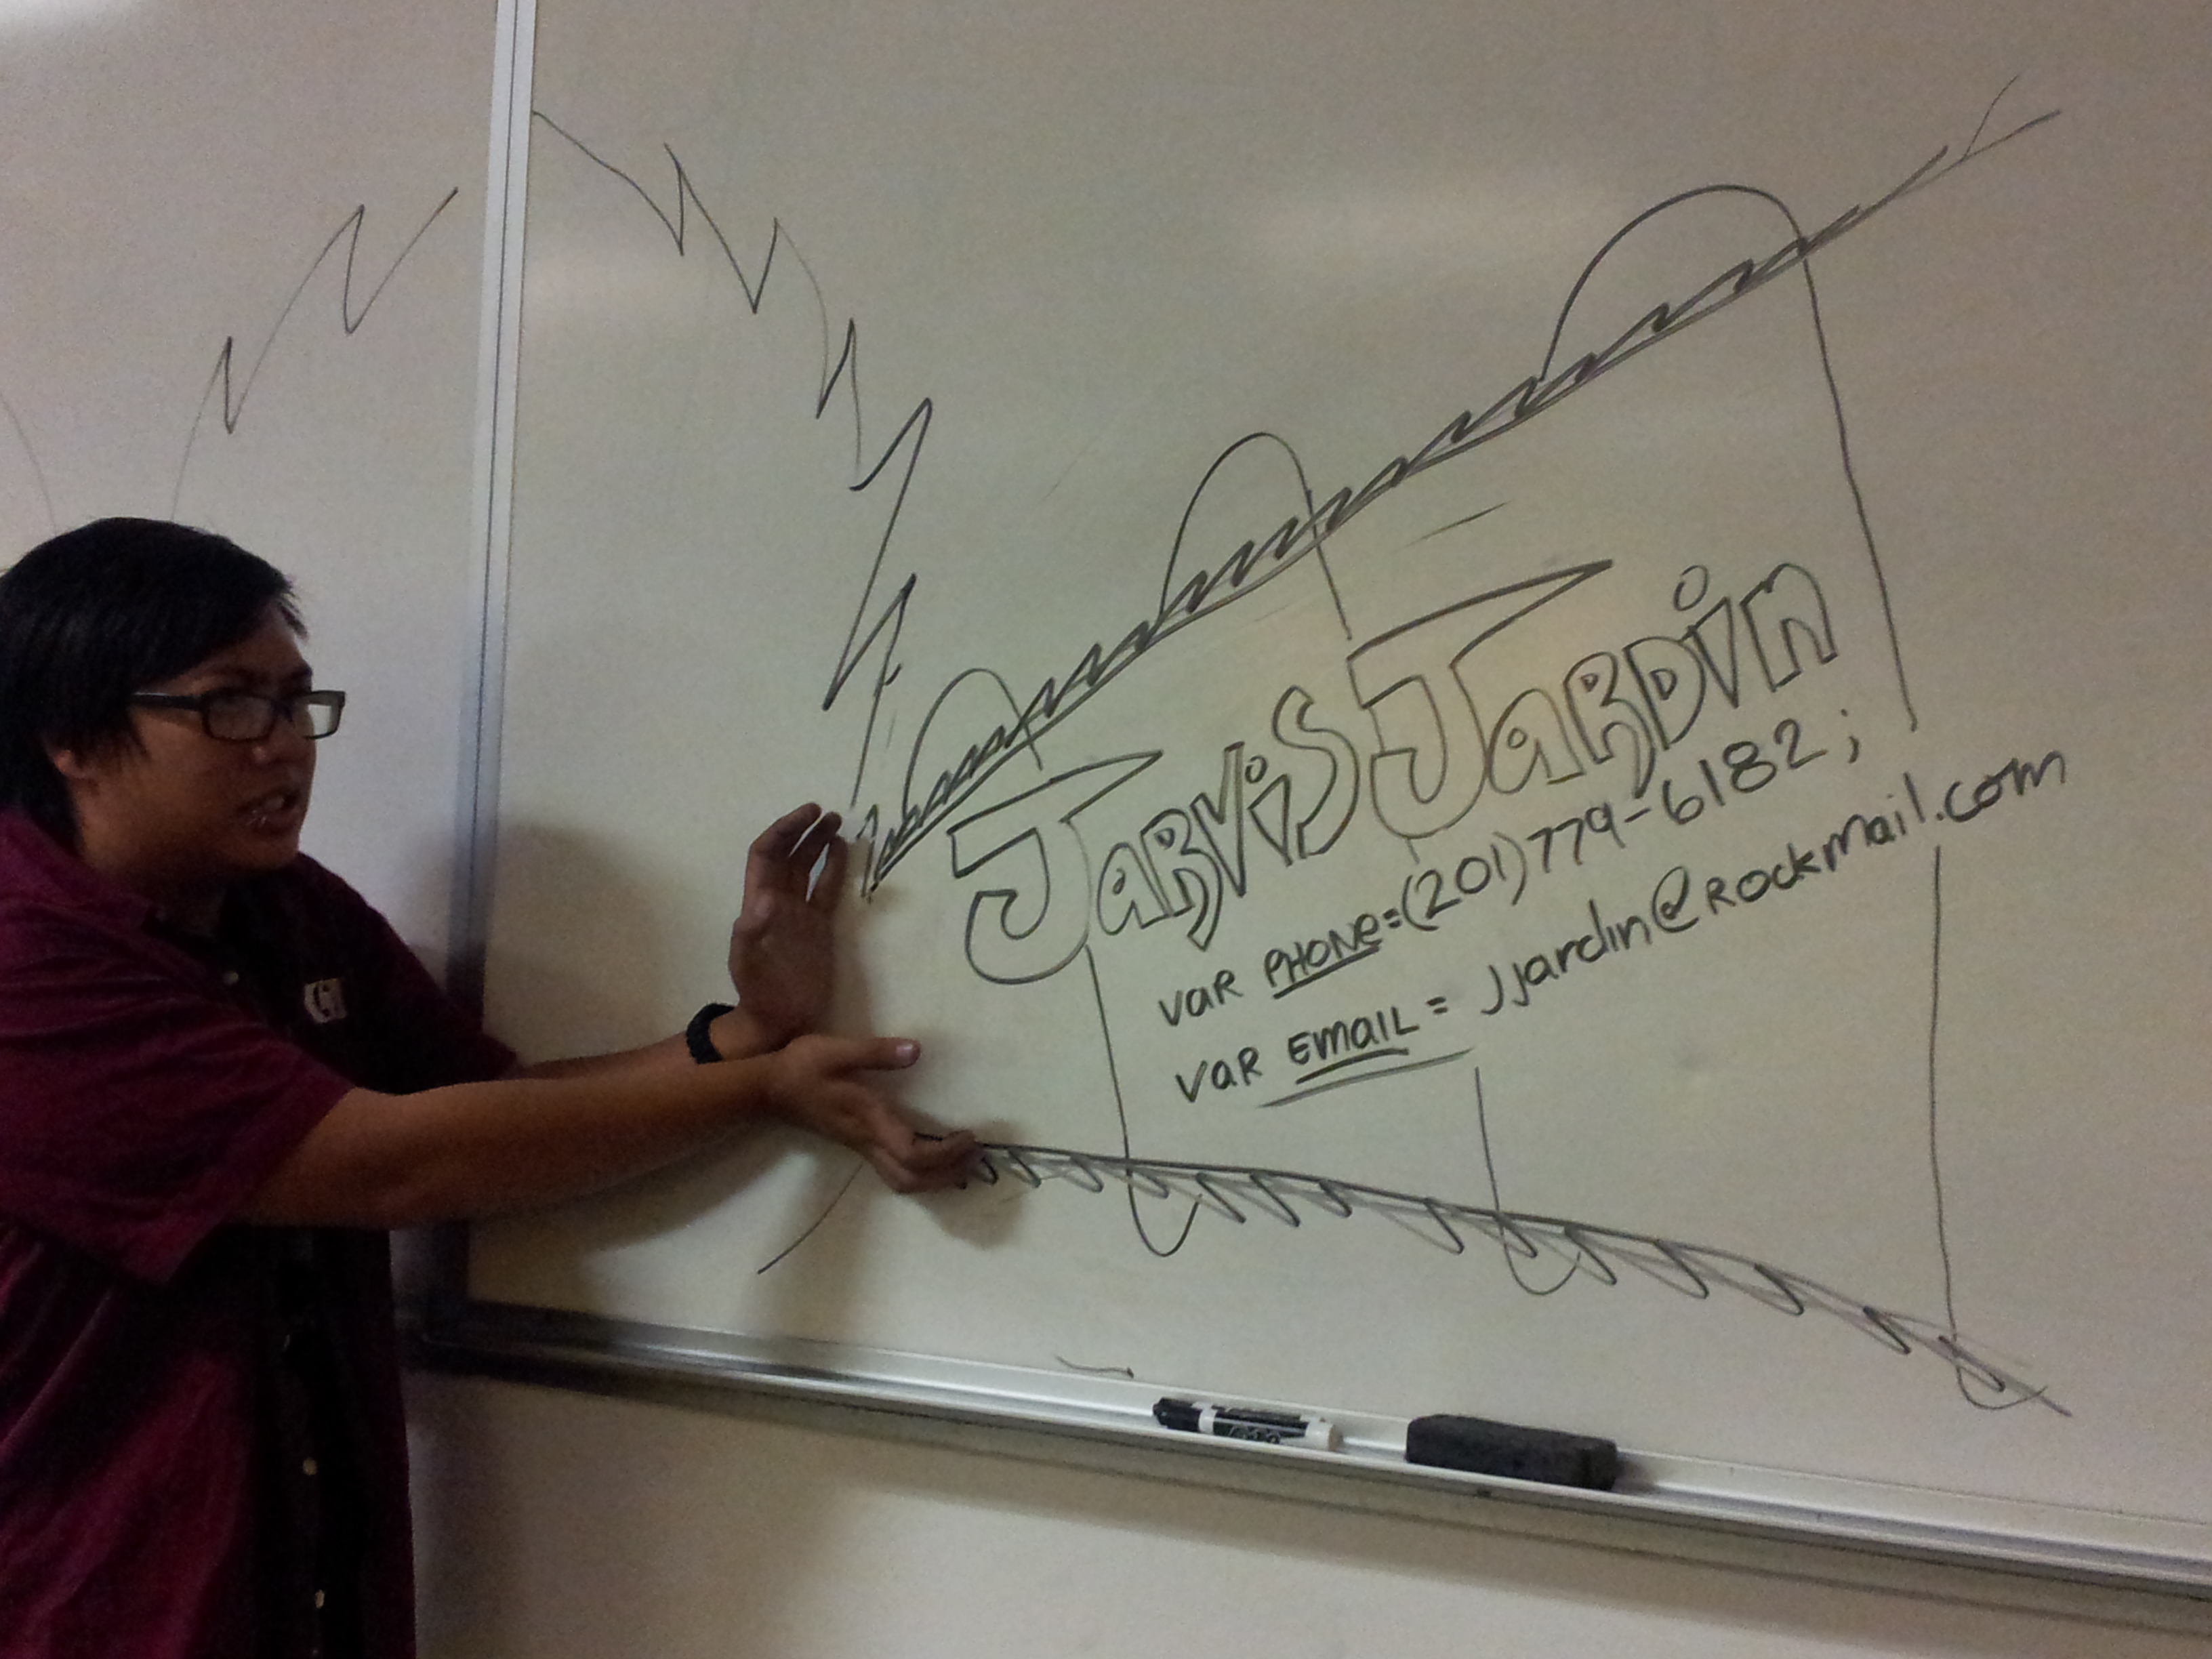 JARViS JARDin
VAR PHONE=(201)779-6182;
VAR EMAIL = jjardin@Rockmail.com